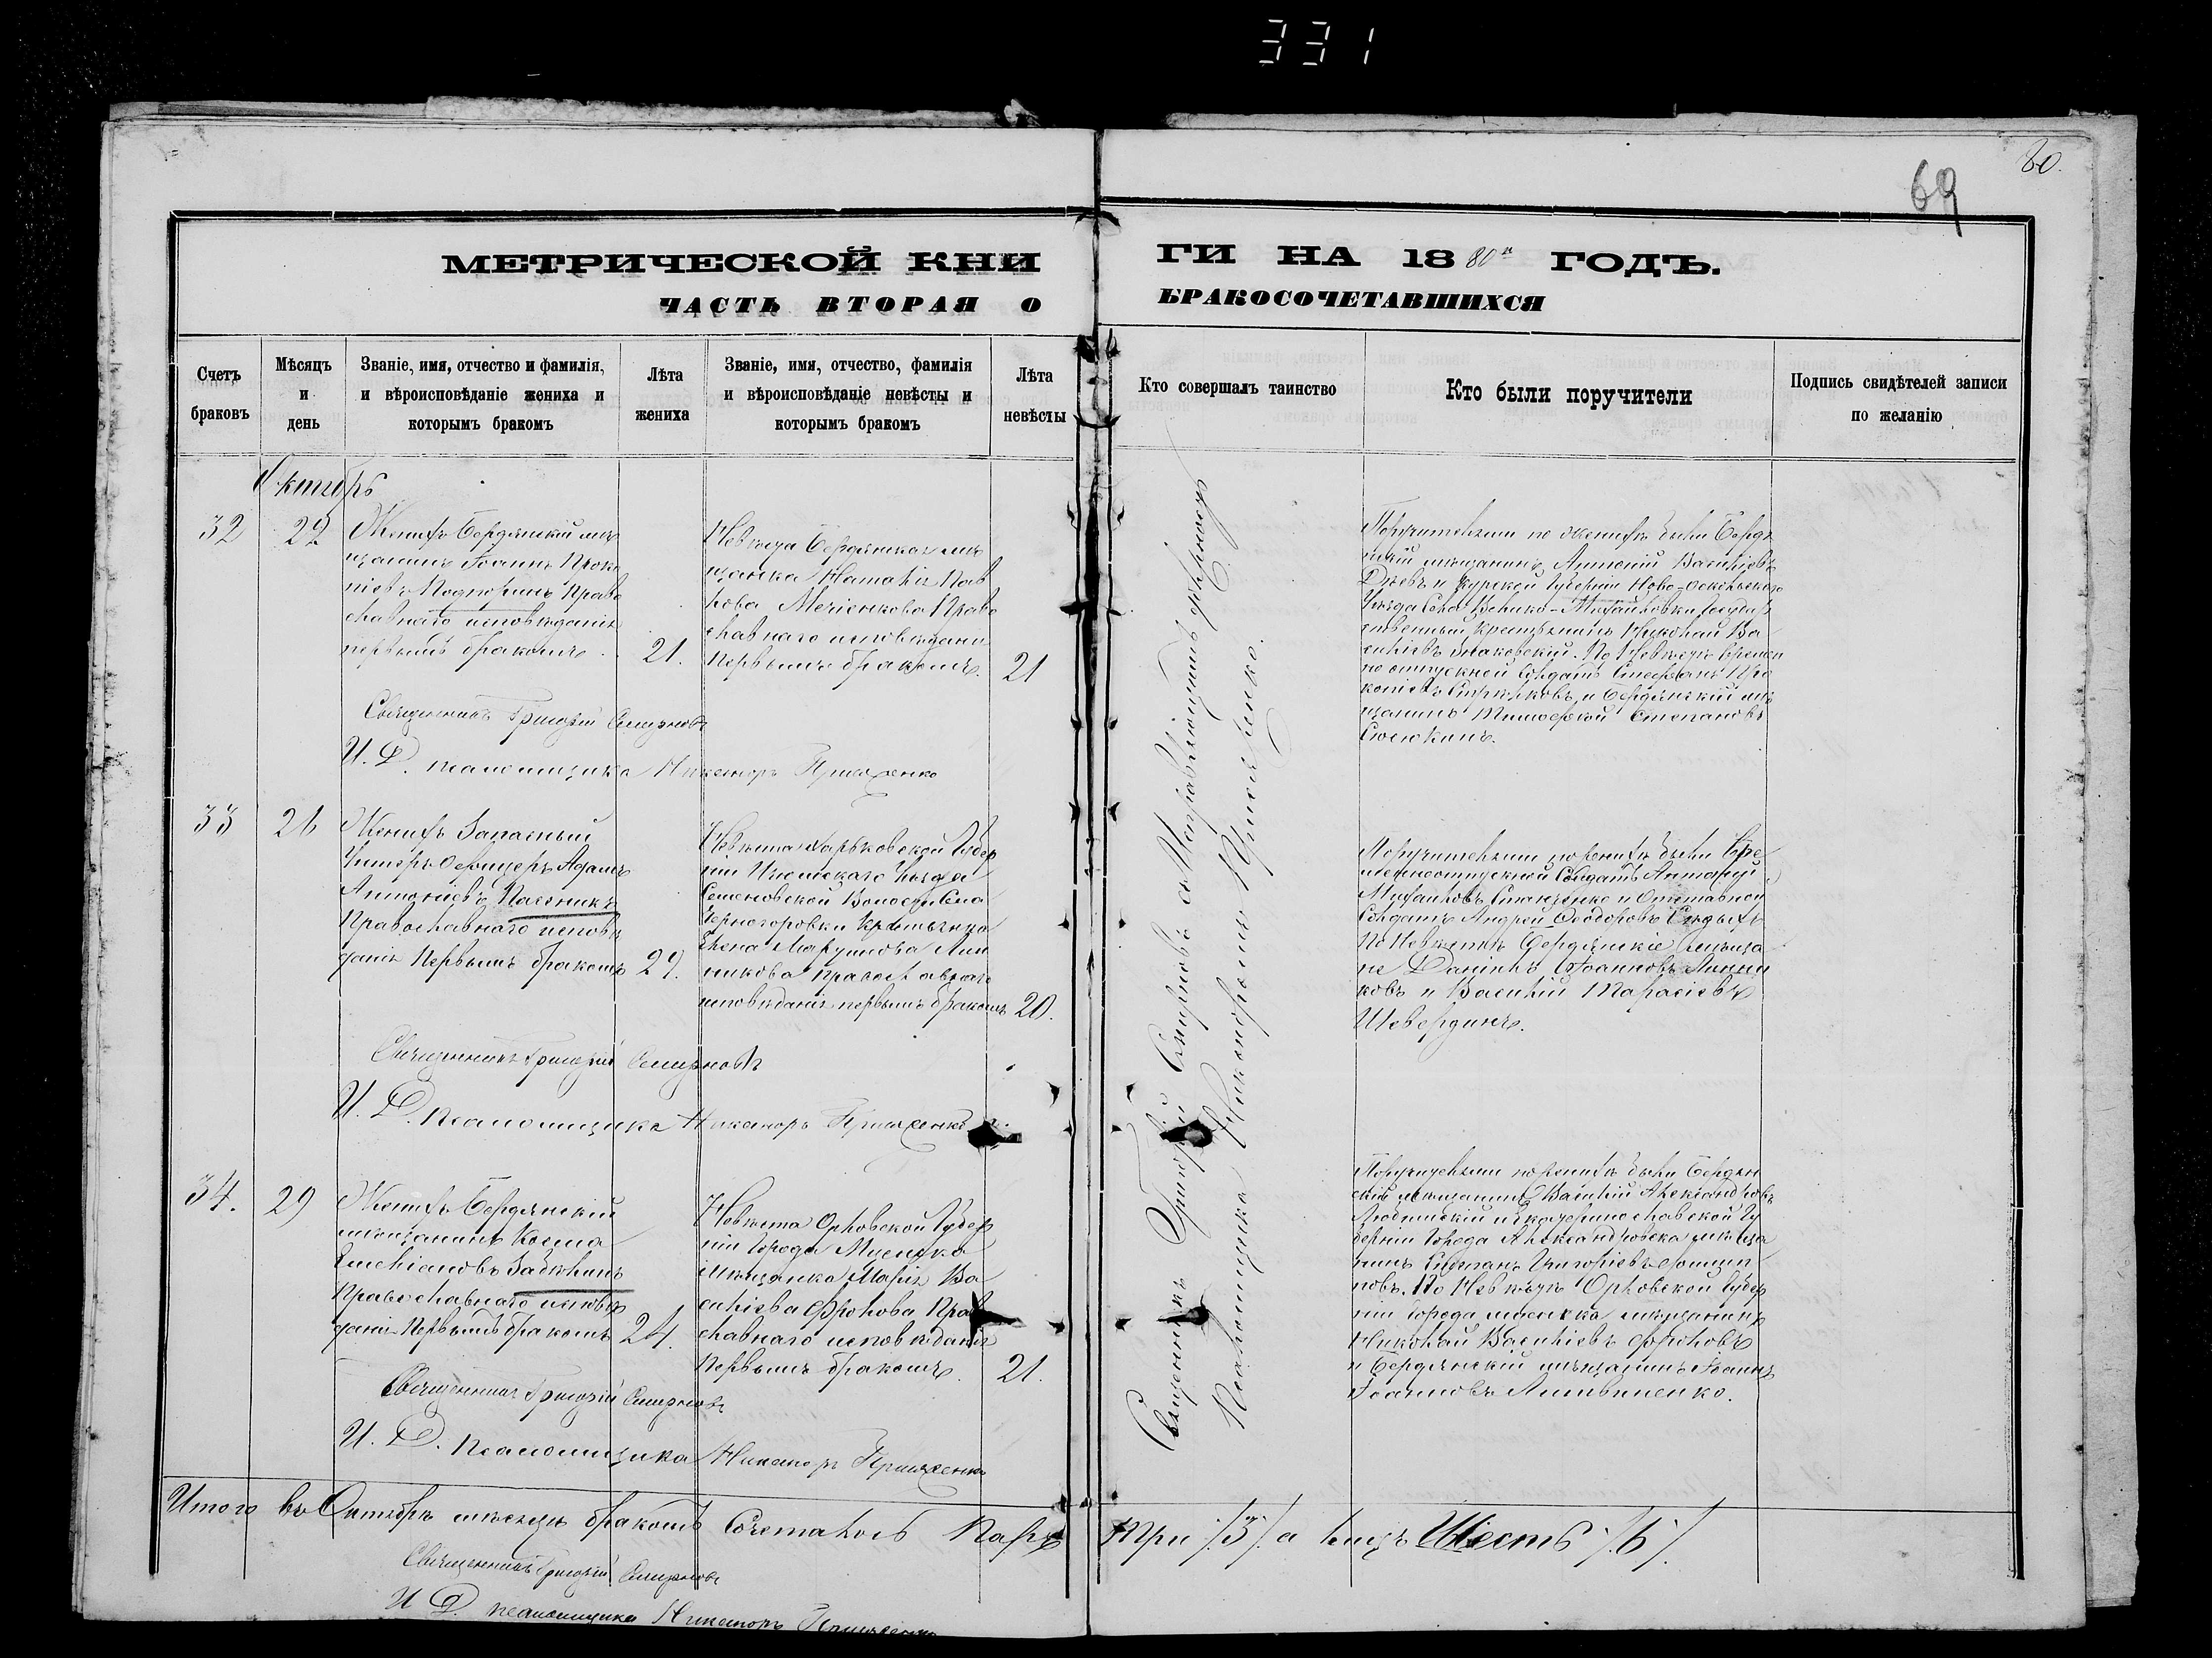 331
80.
69
МЕТРИЧЕСКОЙ КНИ
ГИ НА 1880й ГОДЪ.
ЧАСТЬ ВТОРАЯ О
БРАКОСОЧЕТАВШИХСЯ
Счетъ браковъ
Мѣсяцъ и день
Званіе, имя, отчество и фамилія,
и вѣроисповѣданіе жениха и
которымъ бракомъ
Лѣта жениха
Званіе, имя, отчество, фамилія
и вѣроисповѣданіе невѣсты и
которымъ бракомъ
Лѣта невѣсты
Кто совершалъ таинство
Кто были поручители
Подпись свидѣтелей записи
по желанію
Октябрь
32
22
Женихъ Бердянскій мѣ
щанинъ Іоаннъ Проко
піевъ Право
славнаго исповѣданія
первымъ бракомъ.
21.
Невѣста Бердянская мѣ
щанка Наталія Пав
лова Право
славнаго исповѣдані
Первымъ бракомъ.
21
Поручителями по женихѣ были Бердя
нскій мѣщанинъ Василіевъ
и Курской Губерніи Ново-Оскольскаго
Уѣзда Села Велико-Михайловки Государ
ственный крестьянинъ Николай Ва
силіевъ. По Невѣстѣ Времен
но отпускной Солдатъ Стефанъ Про
копіевъ и Бердянскій мѣ
щанинъ Тимофей Степановъ
Священникъ Григорій Смирновъ
И. Д. псаломщика Никаноръ
33
26
Женихъ Запасный
Унтеръ Офицеръ Адамъ
Антоніевъ Пасѣчникъ
Православнаго исповѣ
данія Первымъ бракомъ
29.
Невѣста Харьковской Губер
ніи Изюмскаго Уѣзда
Волости Села
Черногоровки Крестьянка
Елена Лин
никова православнаго
исповѣданія первымъ бракомъ
20.
Поручителями по женихѣ были Вре
менноотпускной Солдатъ
Михаиловъ и Отставной
Солдатъ Андрей Ѳеодоровъ Сѣдыхъ
По Невѣстѣ Бердянскіе мѣща
не Даніилъ Іоанновъ Линни
ковъ и Василій Тарасіевъ
Шевердинъ.
Священникъ Григорій Смирновъ
И. Д. Псаломщика Никаноръ
34.
29
Женихъ Бердянскій
мѣщанинъ Косма
Емеліановъ
Православнаго исповѣ
данія Первымъ бракомъ
24.
Невѣста Орловской Губер
ніи Города Мценска
Мѣщанка Марія Ва
силіева Фролова Право
славнаго исповѣданія
Первымъ бракомъ.
21.
Поручителями по женихѣ были Бердян
скій мѣщанинъ Василій Александровъ
и Екатеринославской Гу
берніи Города Александровска мѣща
нинъ Григоріевъ
По Невѣстѣ Орловской Губер
ніи города Мценска мѣщанинъ
Николай Василіевъ Фроловъ
и Бердянскій мѣщанинъ Іоаннъ
Іоанновъ Литвиненко.
Священникъ Григорій Смирновъ
И. Д. Псаломщика Никаноръ
Священникъ Григорій Смирновъ съ исправляющимъ должность
Псаломщика Никаноромъ
Итого въ Октябрѣ мѣсяцѣ бракомъ Сочеталось Паръ Три /3/ а лицъ Шесть /6/.
Священникъ Григорій Смирновъ
И. Д. псаломщика Никаноръ